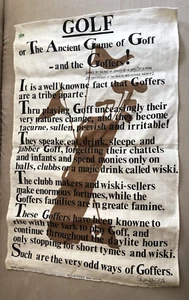 GOLF
or The Ancient Game of Goff
- and the Goffers -
It is a well known fact that Goffers
are a tribe aparte!
Thru playing Goff unceasingly their
very natures change and they become
tacurne, sullen, peevish and irritable!
They speake, eat, drink, sleepe and
jabber Goff, forgetting their chattels
and infants and spend monies only on
balls, clubbs and a magic drink called wiski.
The clubb makers and wiski-sellers
make enormous fortunes, while the
Goffers families are in greate famine.
These Goffers have been knowne to
rise with the lark to play Goff, and
continue throughout all daylite hours
only stopping for short tymes and wiski.
Such are the very odd ways of Goffers.